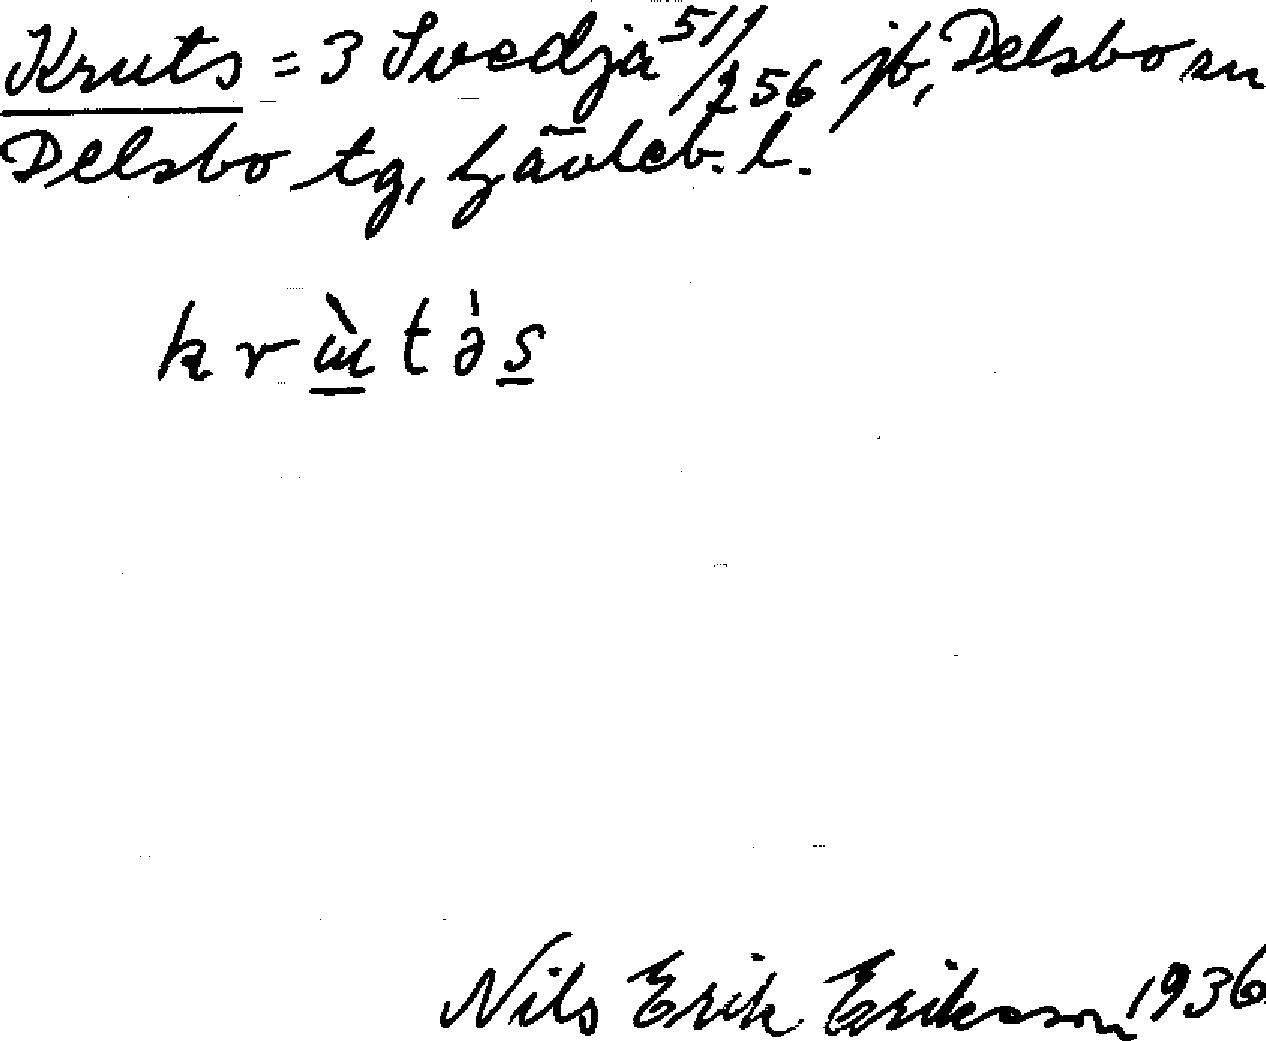 Kruts = 3 Svedja 51/256 jb, Delsbo sn
Delsbo tg, Gävleb. l.
krùtə̀s
Nils Erik Eriksson 1936